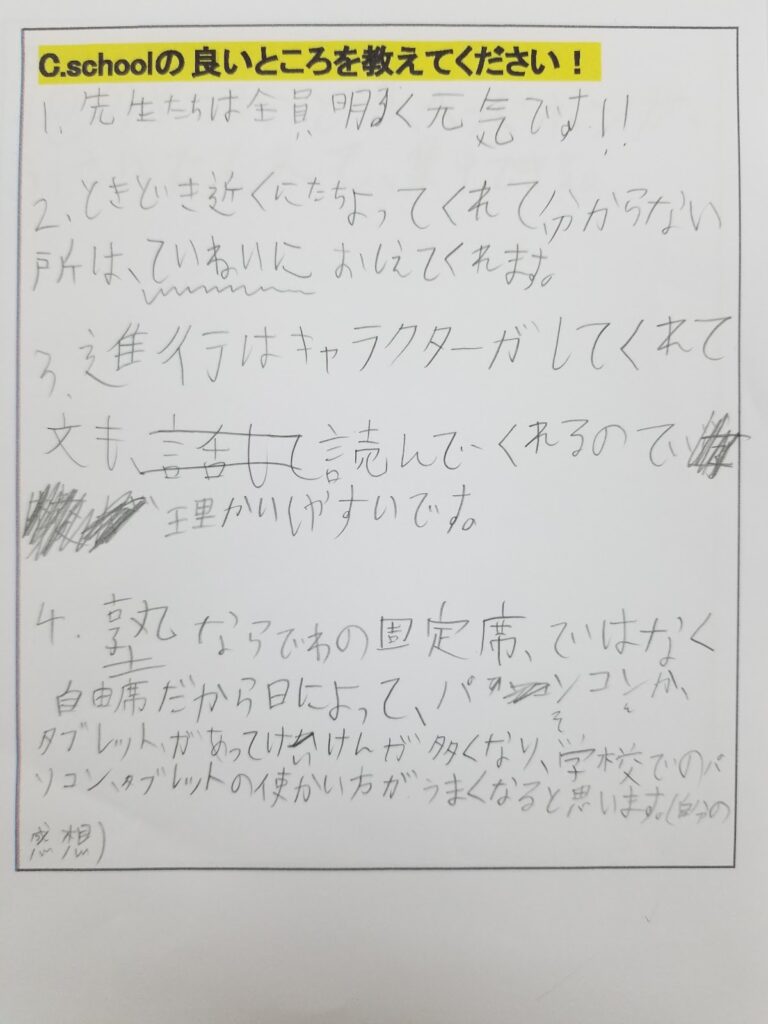 C.schoolの良いところを教えてください！
1、先生たちは全員明るく元気です!!
2、ときどき近くにたちよってくれて分からない
所は、ていねいにおしえてくれます。
3、進行はキャラクターがしてくれて
文も、話して読んでくれるので、
理かいしやすいです。
4. 塾ならでわの固定席、ではなく
自由席だから日によって、パソコンか、
タブレットがあってけいけんが多くなり、学校でのパ
ソコン、タブレットの使かい方がうまくなると思います。(自分の
感想)